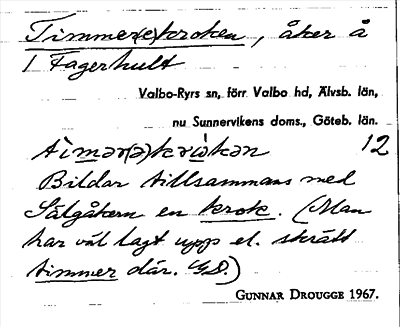 Timmer(e)kroken, åker å
1 Fagerhult
Valbo-Ryrs sn, förr Valbo hd, Älvsb. län,
nu Sunnervikens doms., Göteb. län.
tìmər(ə)krὼkən 12
Bildar tillsammans med
Sälgåkern en krok. (Man
har väl lagt upp el. skrätt
timmer där. GD.)
GUNNAR DROUGGE 1967.